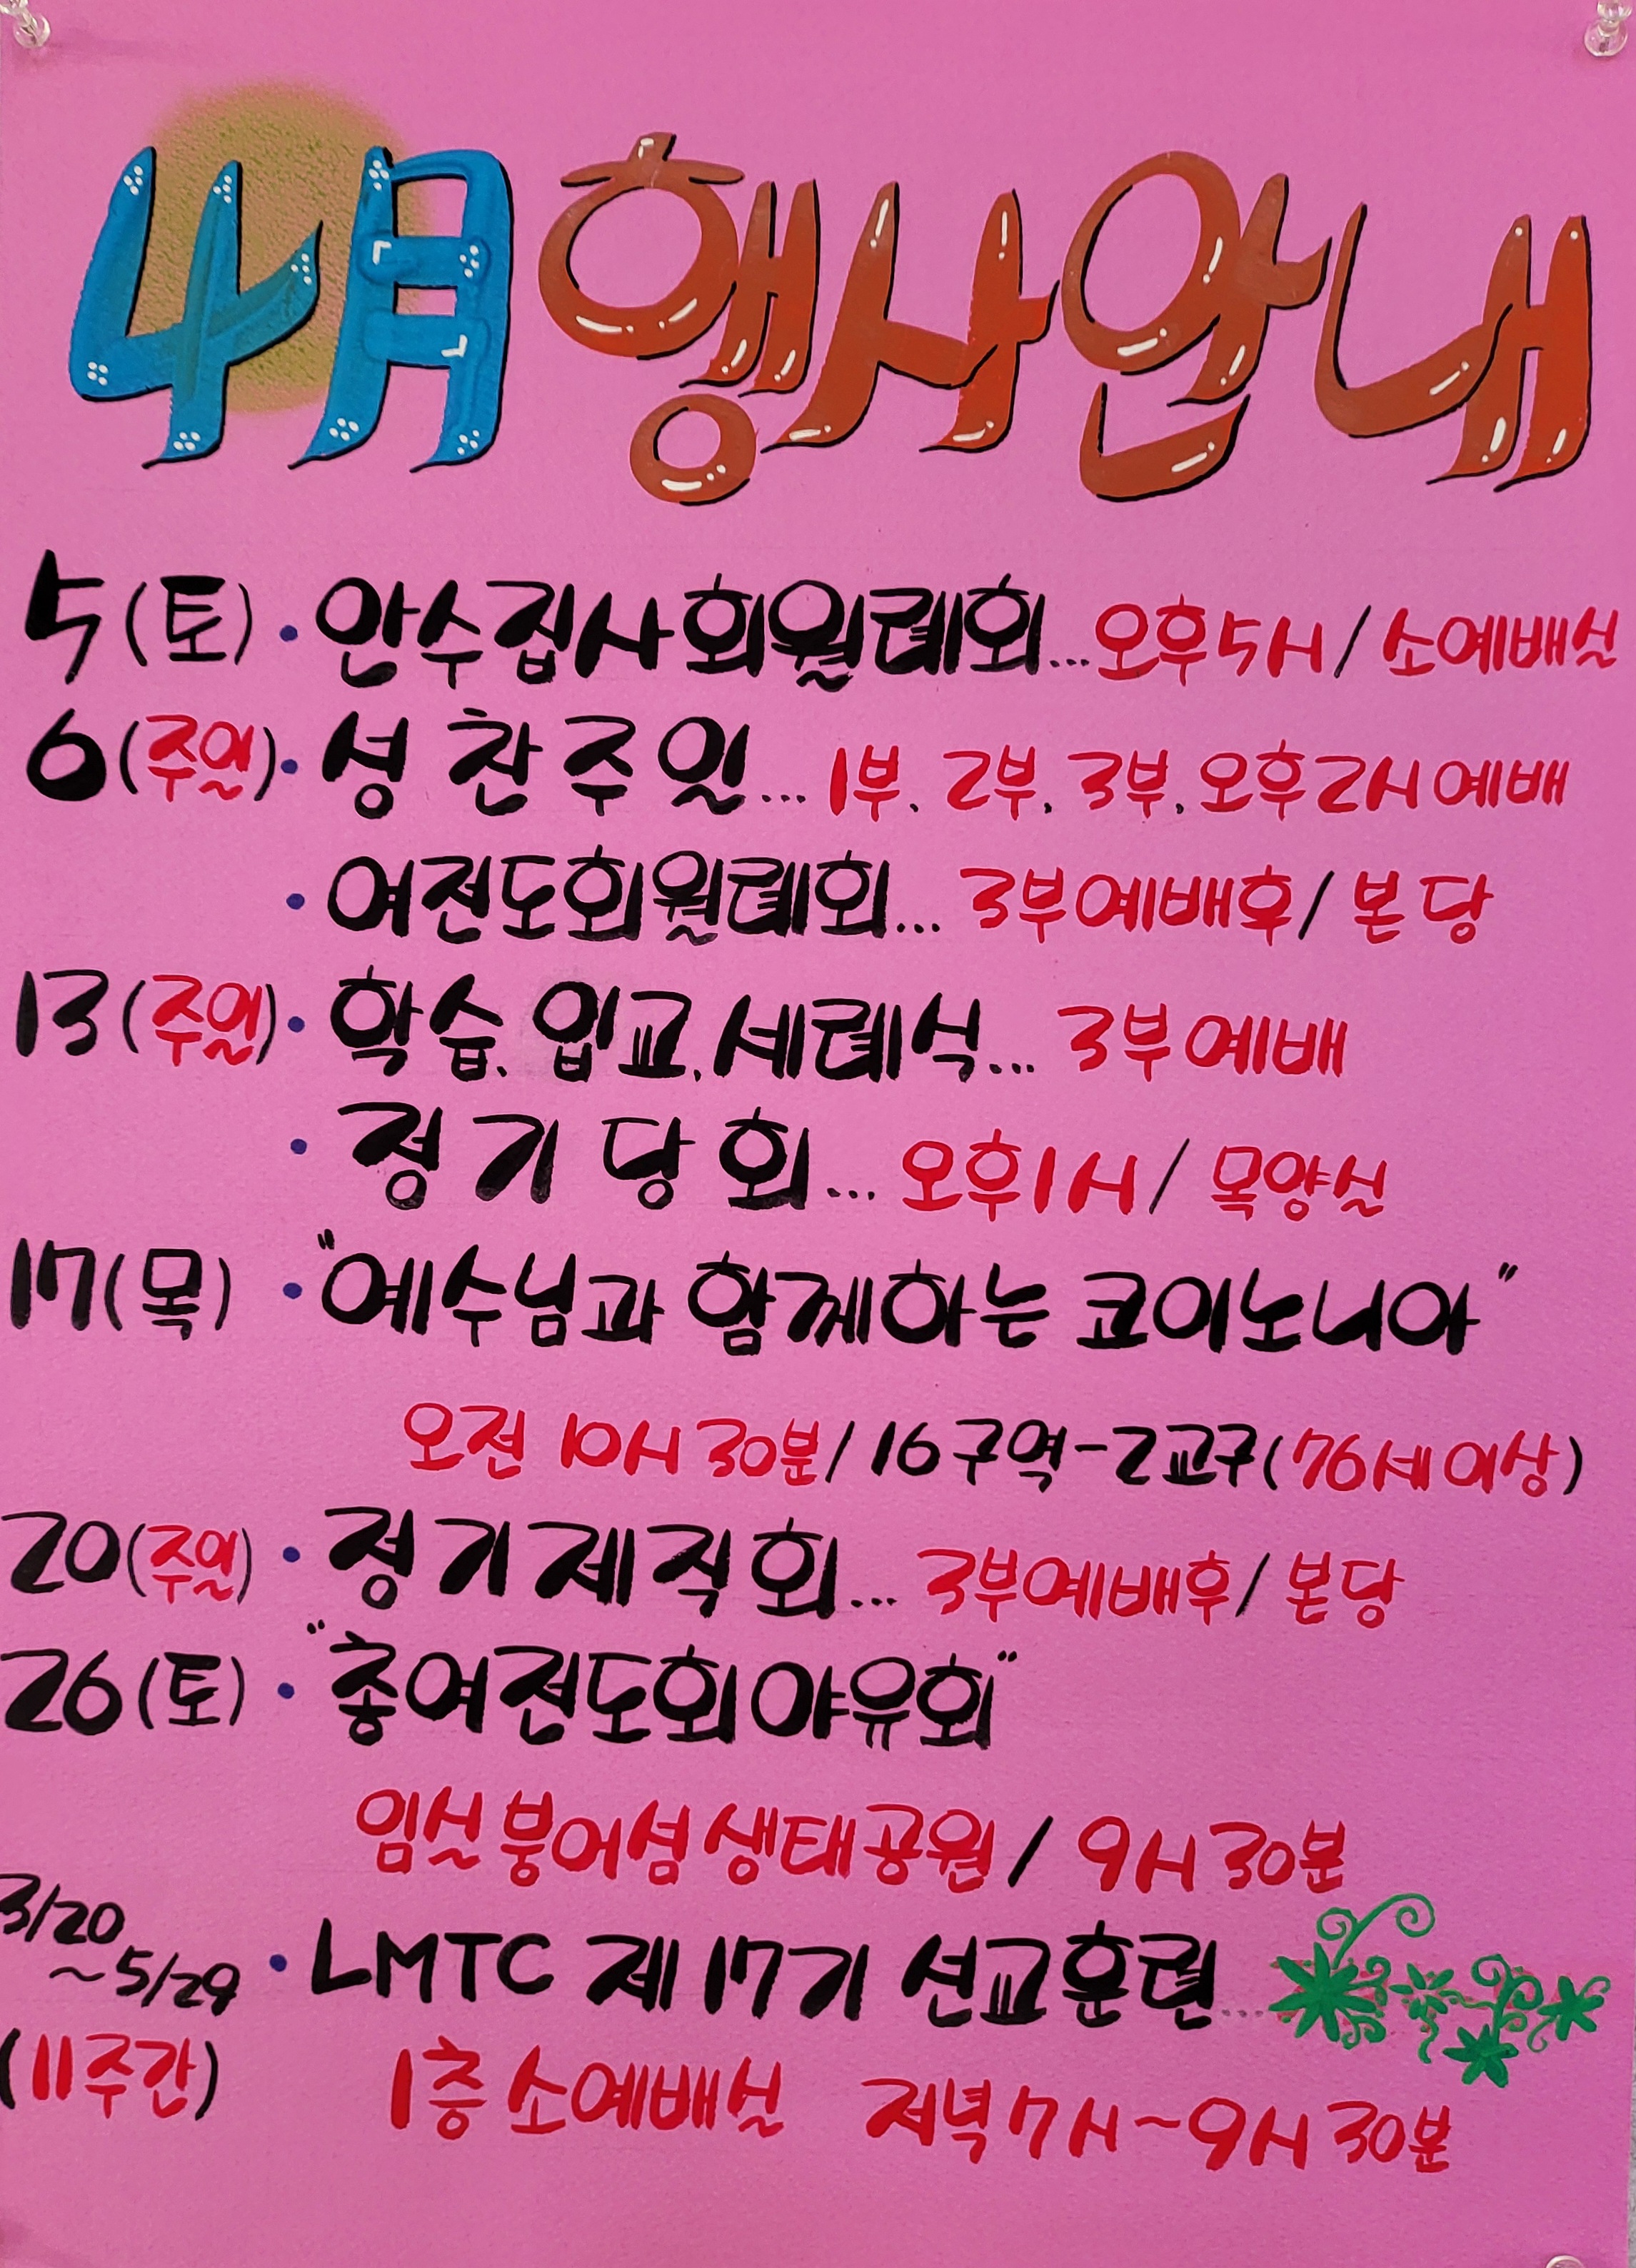 4月 행사안내
5(토)·안수집사회월례회...오후5시/소예배실
6(주일)·성찬주일...1부.2부.3부.오후2시예배
·여전도회월례회...3부예배후/본당
13(주일)·학습.입교.세례식...3부예배
·정기당회...오후1시/목양실
17(목)·"예수님과 함께하는 코이노니아"
오전 10시 30분/16구역-2교구(76세이상)
20(주일)·정기제직회...3부예배후/본당
26(토)·"총여전도회야유회"
임실붕어섬생태공원/9시30분
3/20~5/29·LMTC 제17기 선교훈련...
(11주간) 1층소예배실 저녁7시~9시30분